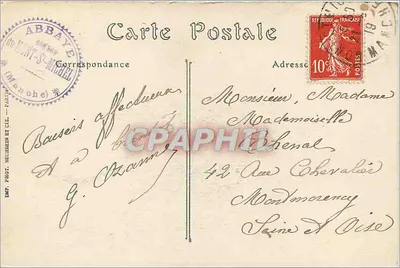 ABBAYE
du MONT-St-MICHEL
(Manche)
Carte Postale
Correspondance
Adresse
RÉPUBLIQUE FRANÇAISE
10c
19
MANCHE
Baisers affectueux
et à
G. Ozanne
Monsieur, Madame
Mademoiselle
Chenal
42 Rue Chevalier
Montmorency
Seine et Oise
CPAPHIL
IMP. PHOT. NEURDEIN ET CIE. — PARIS